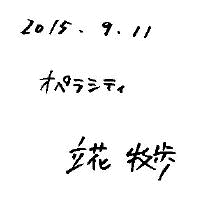 2015.9.11
オペラシティ
立花 牧歩